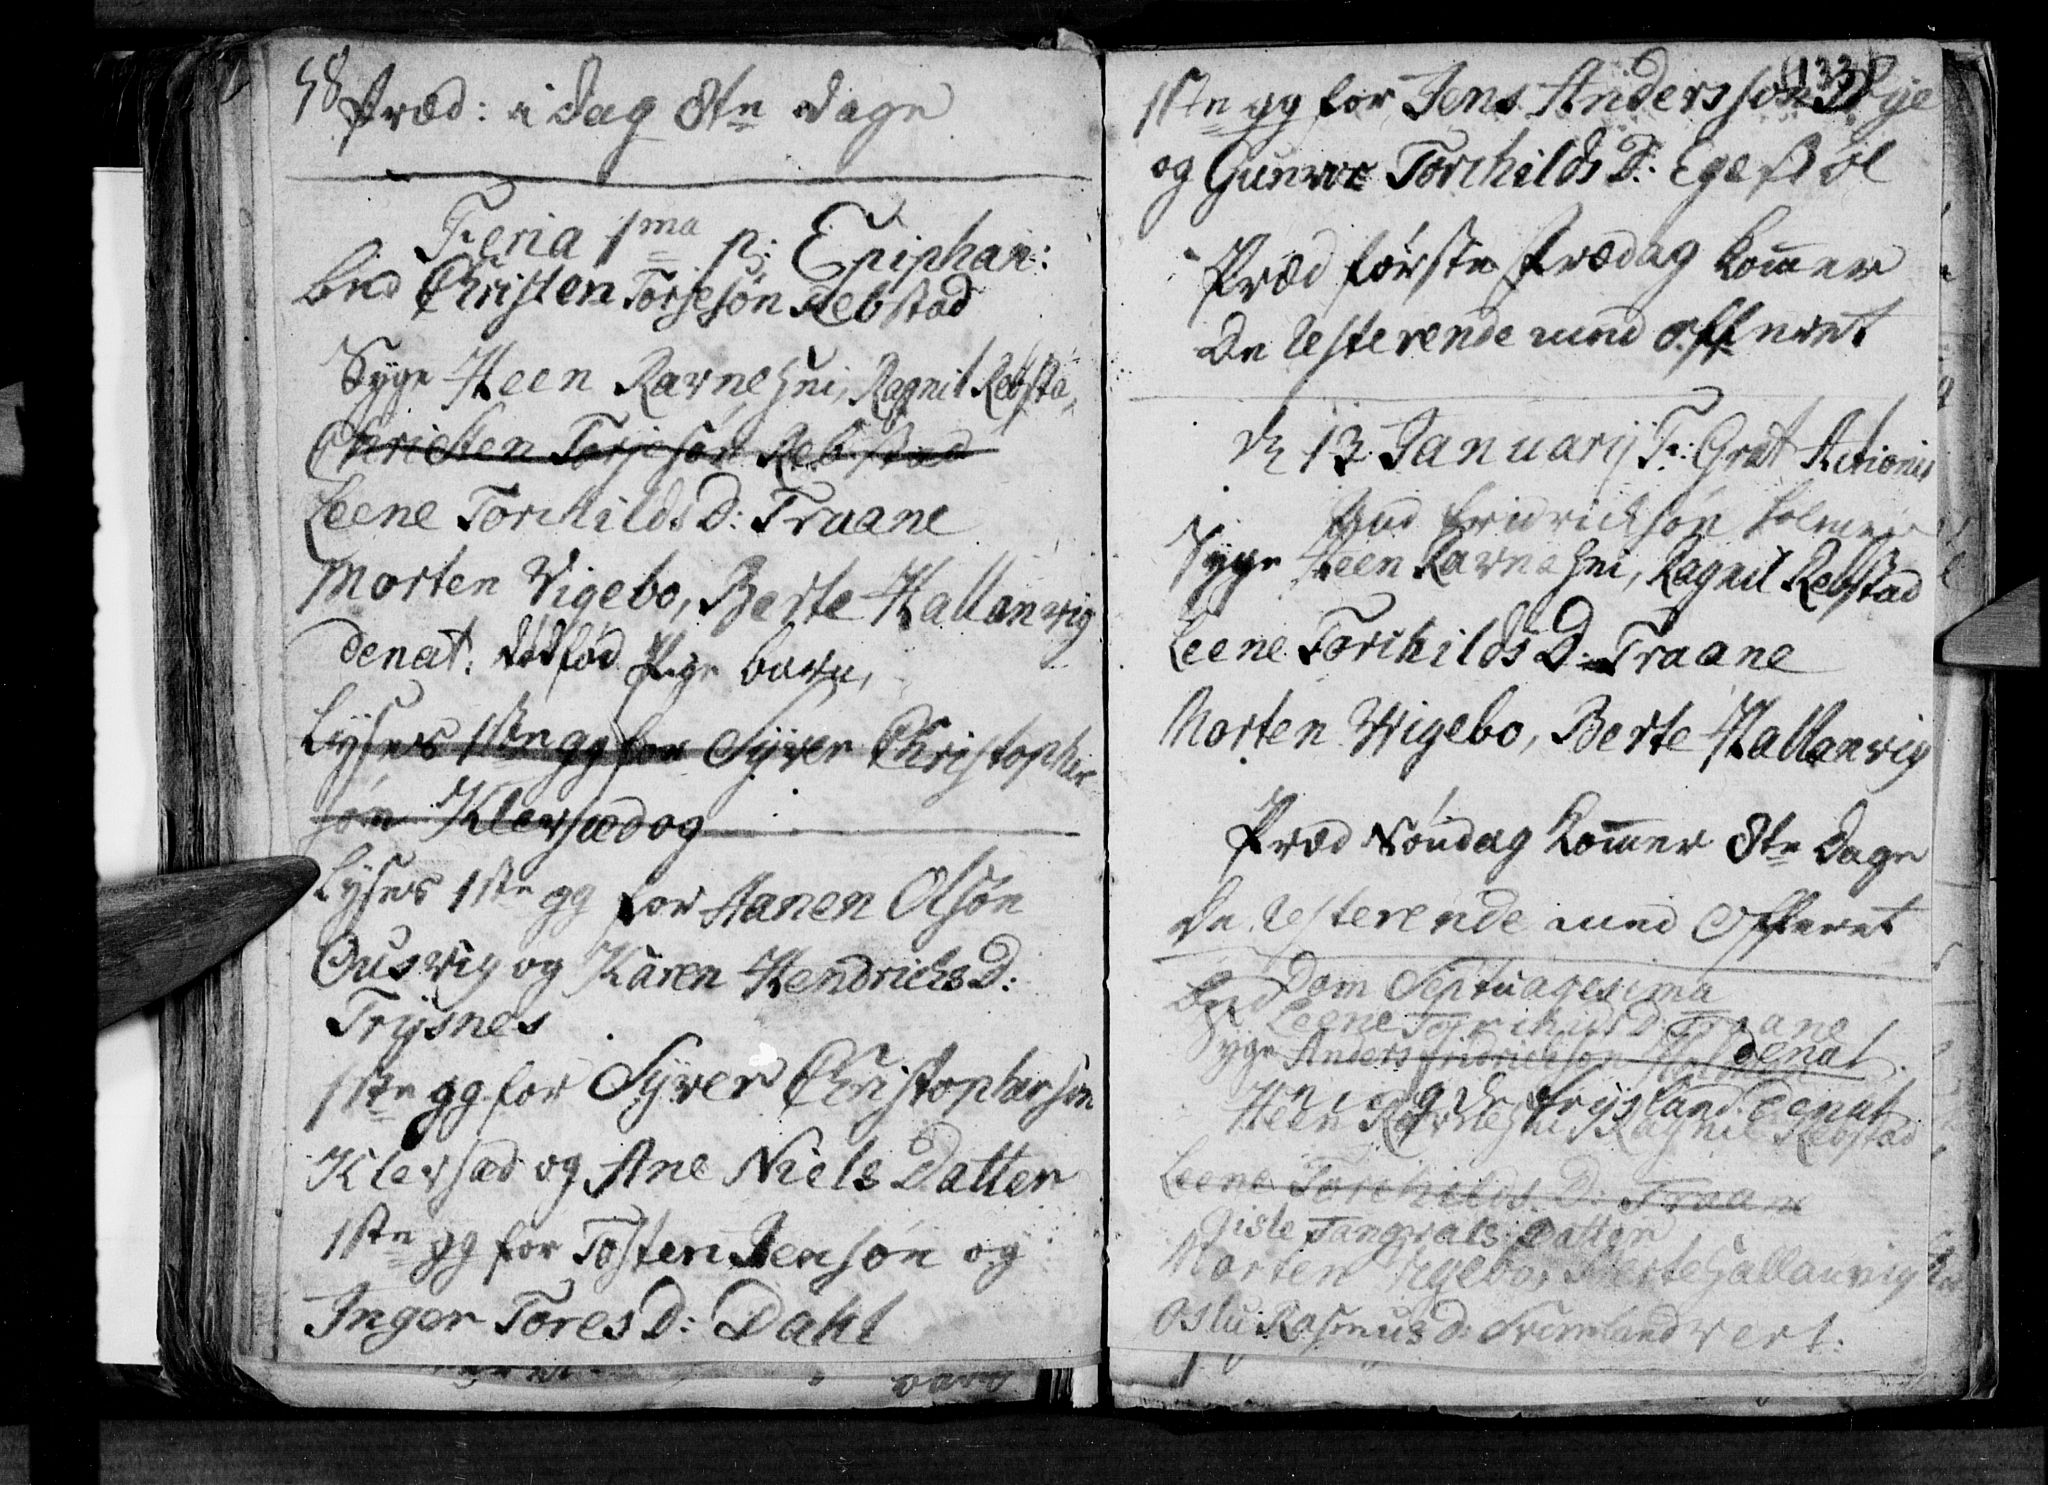 58
Præd: i dag 8te dage
Feria 1ma p: Epiphan:
bud Christen Torjesøn Rebstad
Syge Steen Ravnehei, Ragnil Rebsta
Christen Torjesøn Rebstad
Leene TorchildsD: Traane
Morten Vigebo, Berte Hallanvig
denat: dødfød Pige barn,
Lyses 1ste gg for Syver Christopher
søn Klevsæd og
Lyses 1ste gg for Hanen Olsøn
Ousvig og Karen HendrichsD:
Trysnes
1ste gg for Syver Christophersøn
Klevsæd og Ane Niels Datter
1ste gg for Tosten Jensøn og
Inger ToresD: Dahl
(133)
1ste gg for Jens Andersson Rye
og Gunvor TorchildsD: Egeßøl
Præd første Fredag kommer
De resterende med offeret
d 13 Januarij F: Grat Actionis
bud Fridrichsøn Holmen
Syge Steen Ravnehei, Ragnil Rebstad
Leene TorchildsD: Traane
Morten Wigebo, Berte Hallanvig
Præd Søndag kommer 8te dage
De resterende med Offeret
Dom Septuagesima
bud Leene TorchildsD: Traane
Syge Anders Fridrichsøn denat.
Frysland: denat
Steen Ravnehei, Ragnil Rebstad
Leene Torchilds D: Traan
Gisle Tangvals Datter
Morten Vigebo, Berte Hallanvig
Oslu RasmusD: vert.